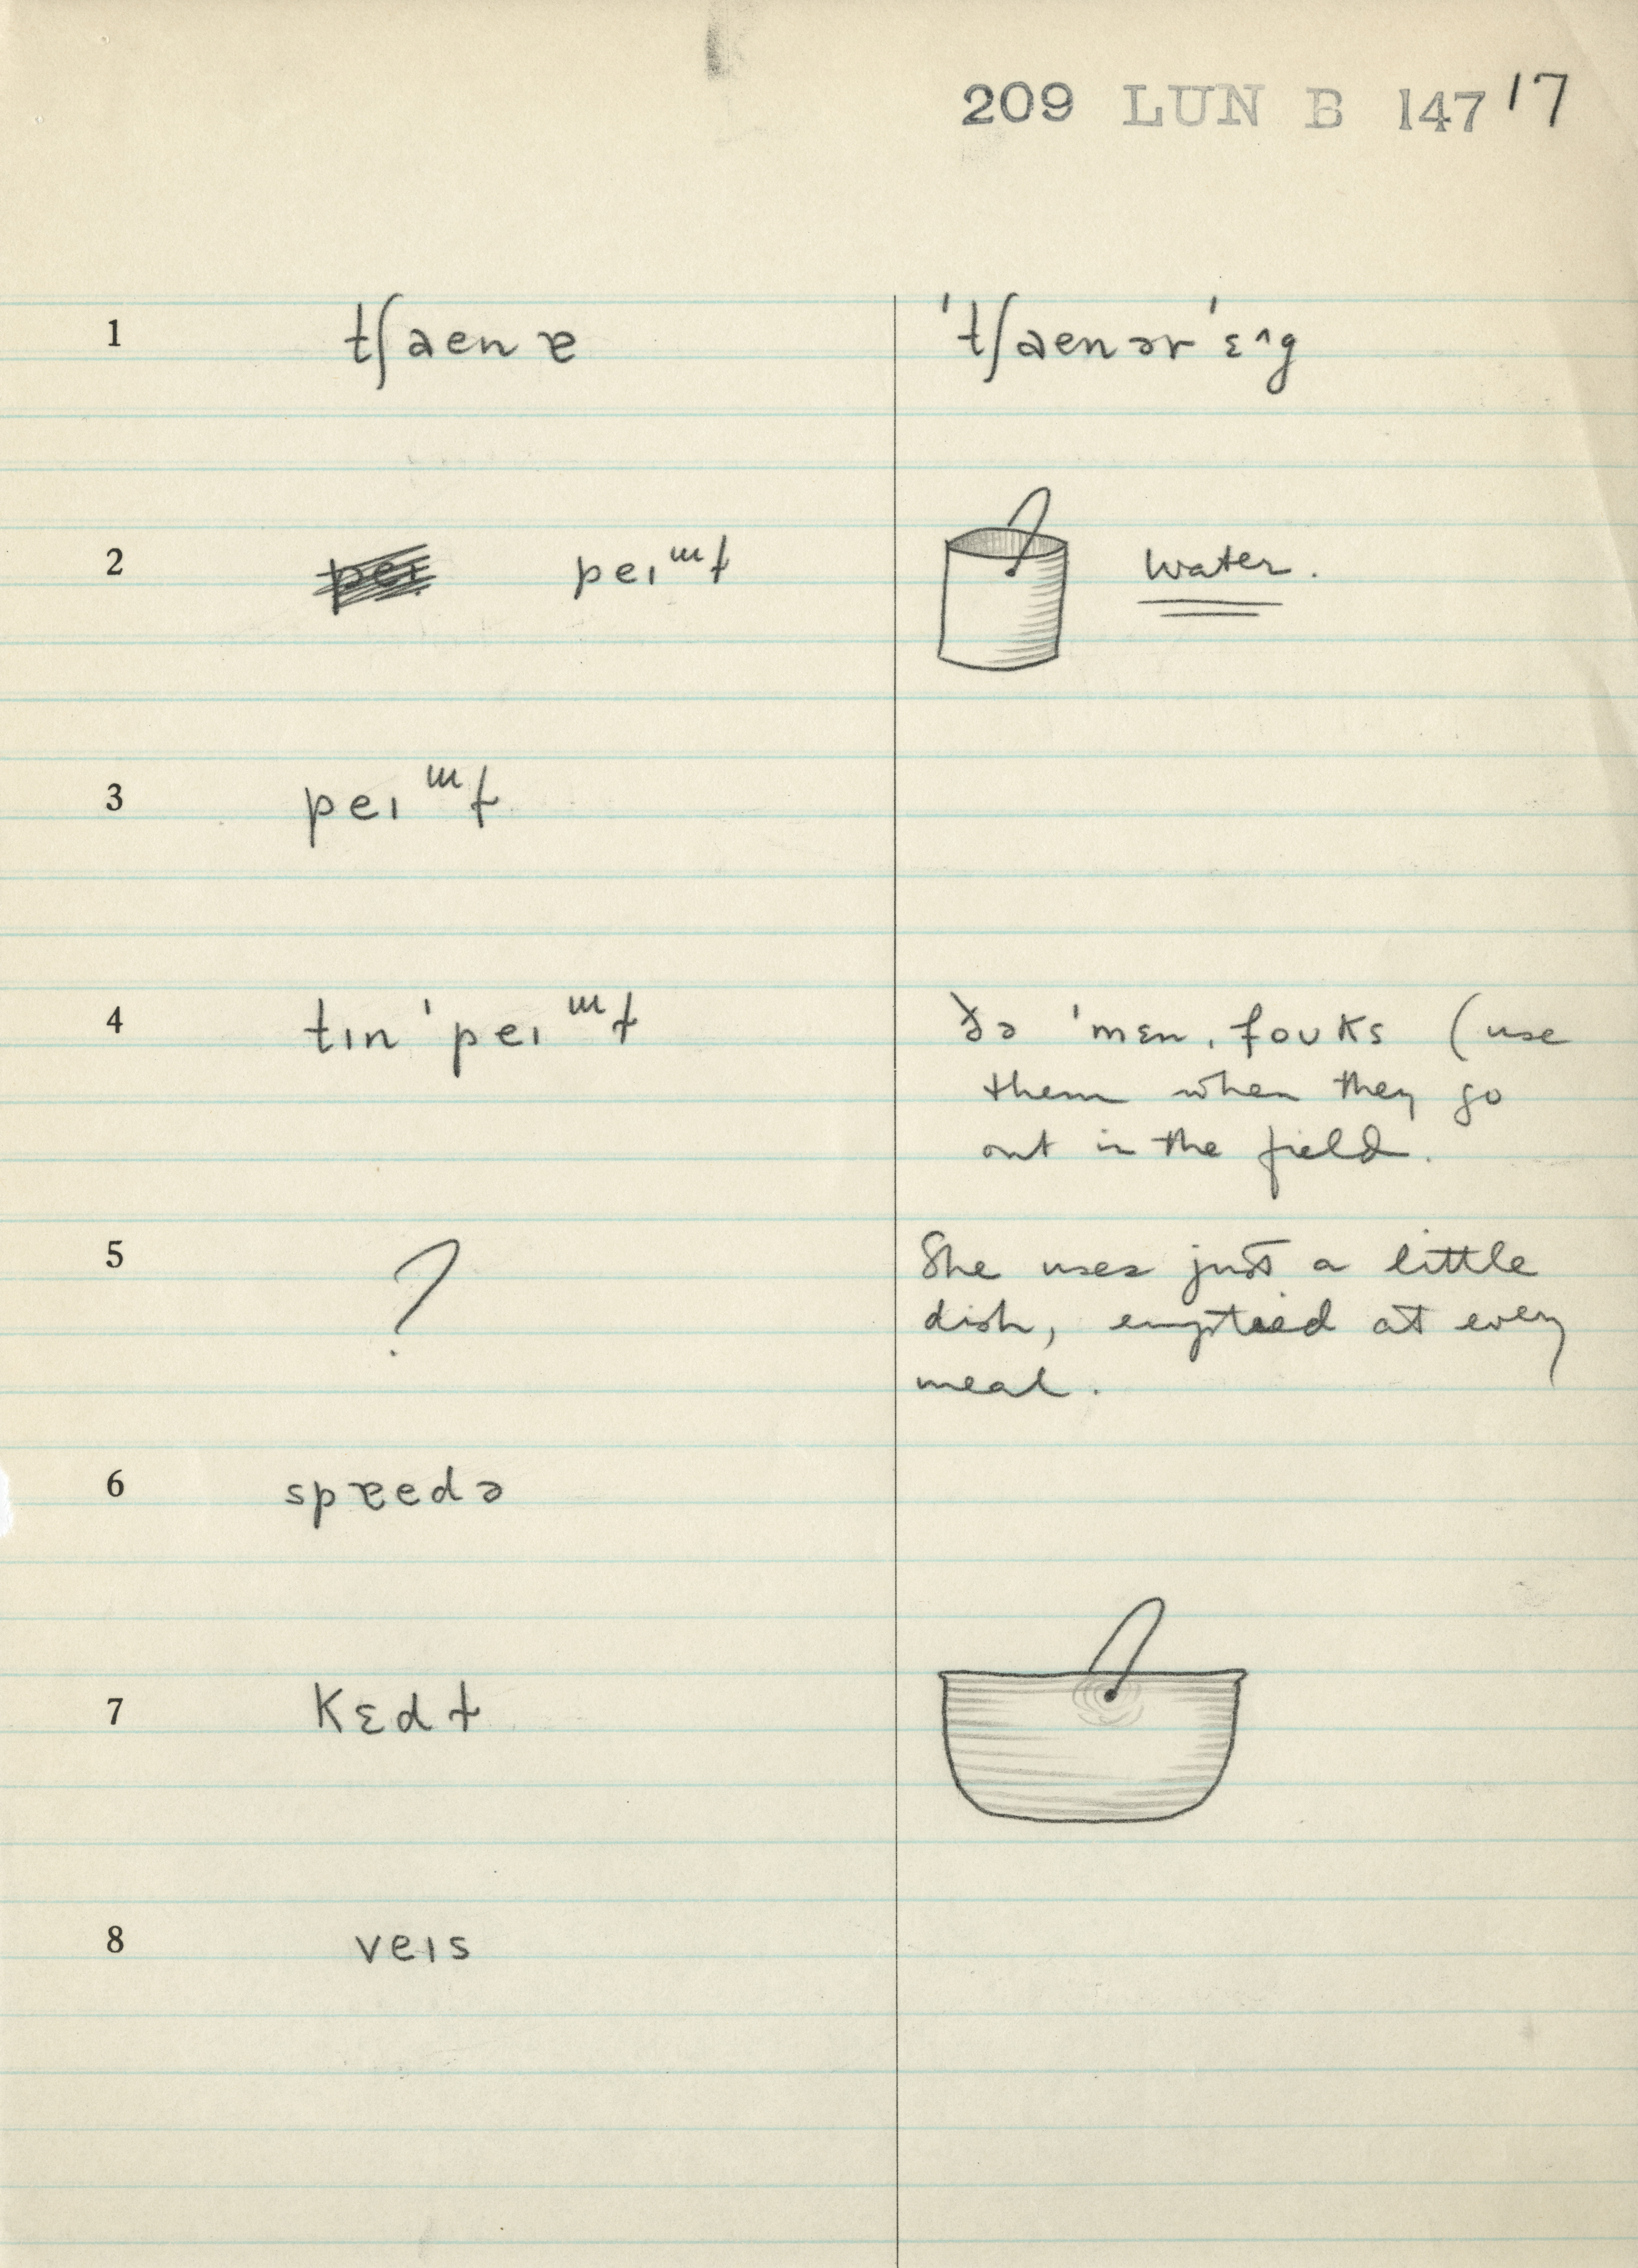 209 LUN B 147 17
1 tʃaenɐ 'tʃaenər'ɛ^g
2 peɪᵚɫ water.
3 peɪᵚɫ
4 tɪn'peɪᵚɫ ðə 'mɛn, foʊks (use
them when they go
out in the field.
5 ? She uses just a little
dish, emptied at every
meal.
6 spɐedə
7 kɛdɫ
8 veɪs